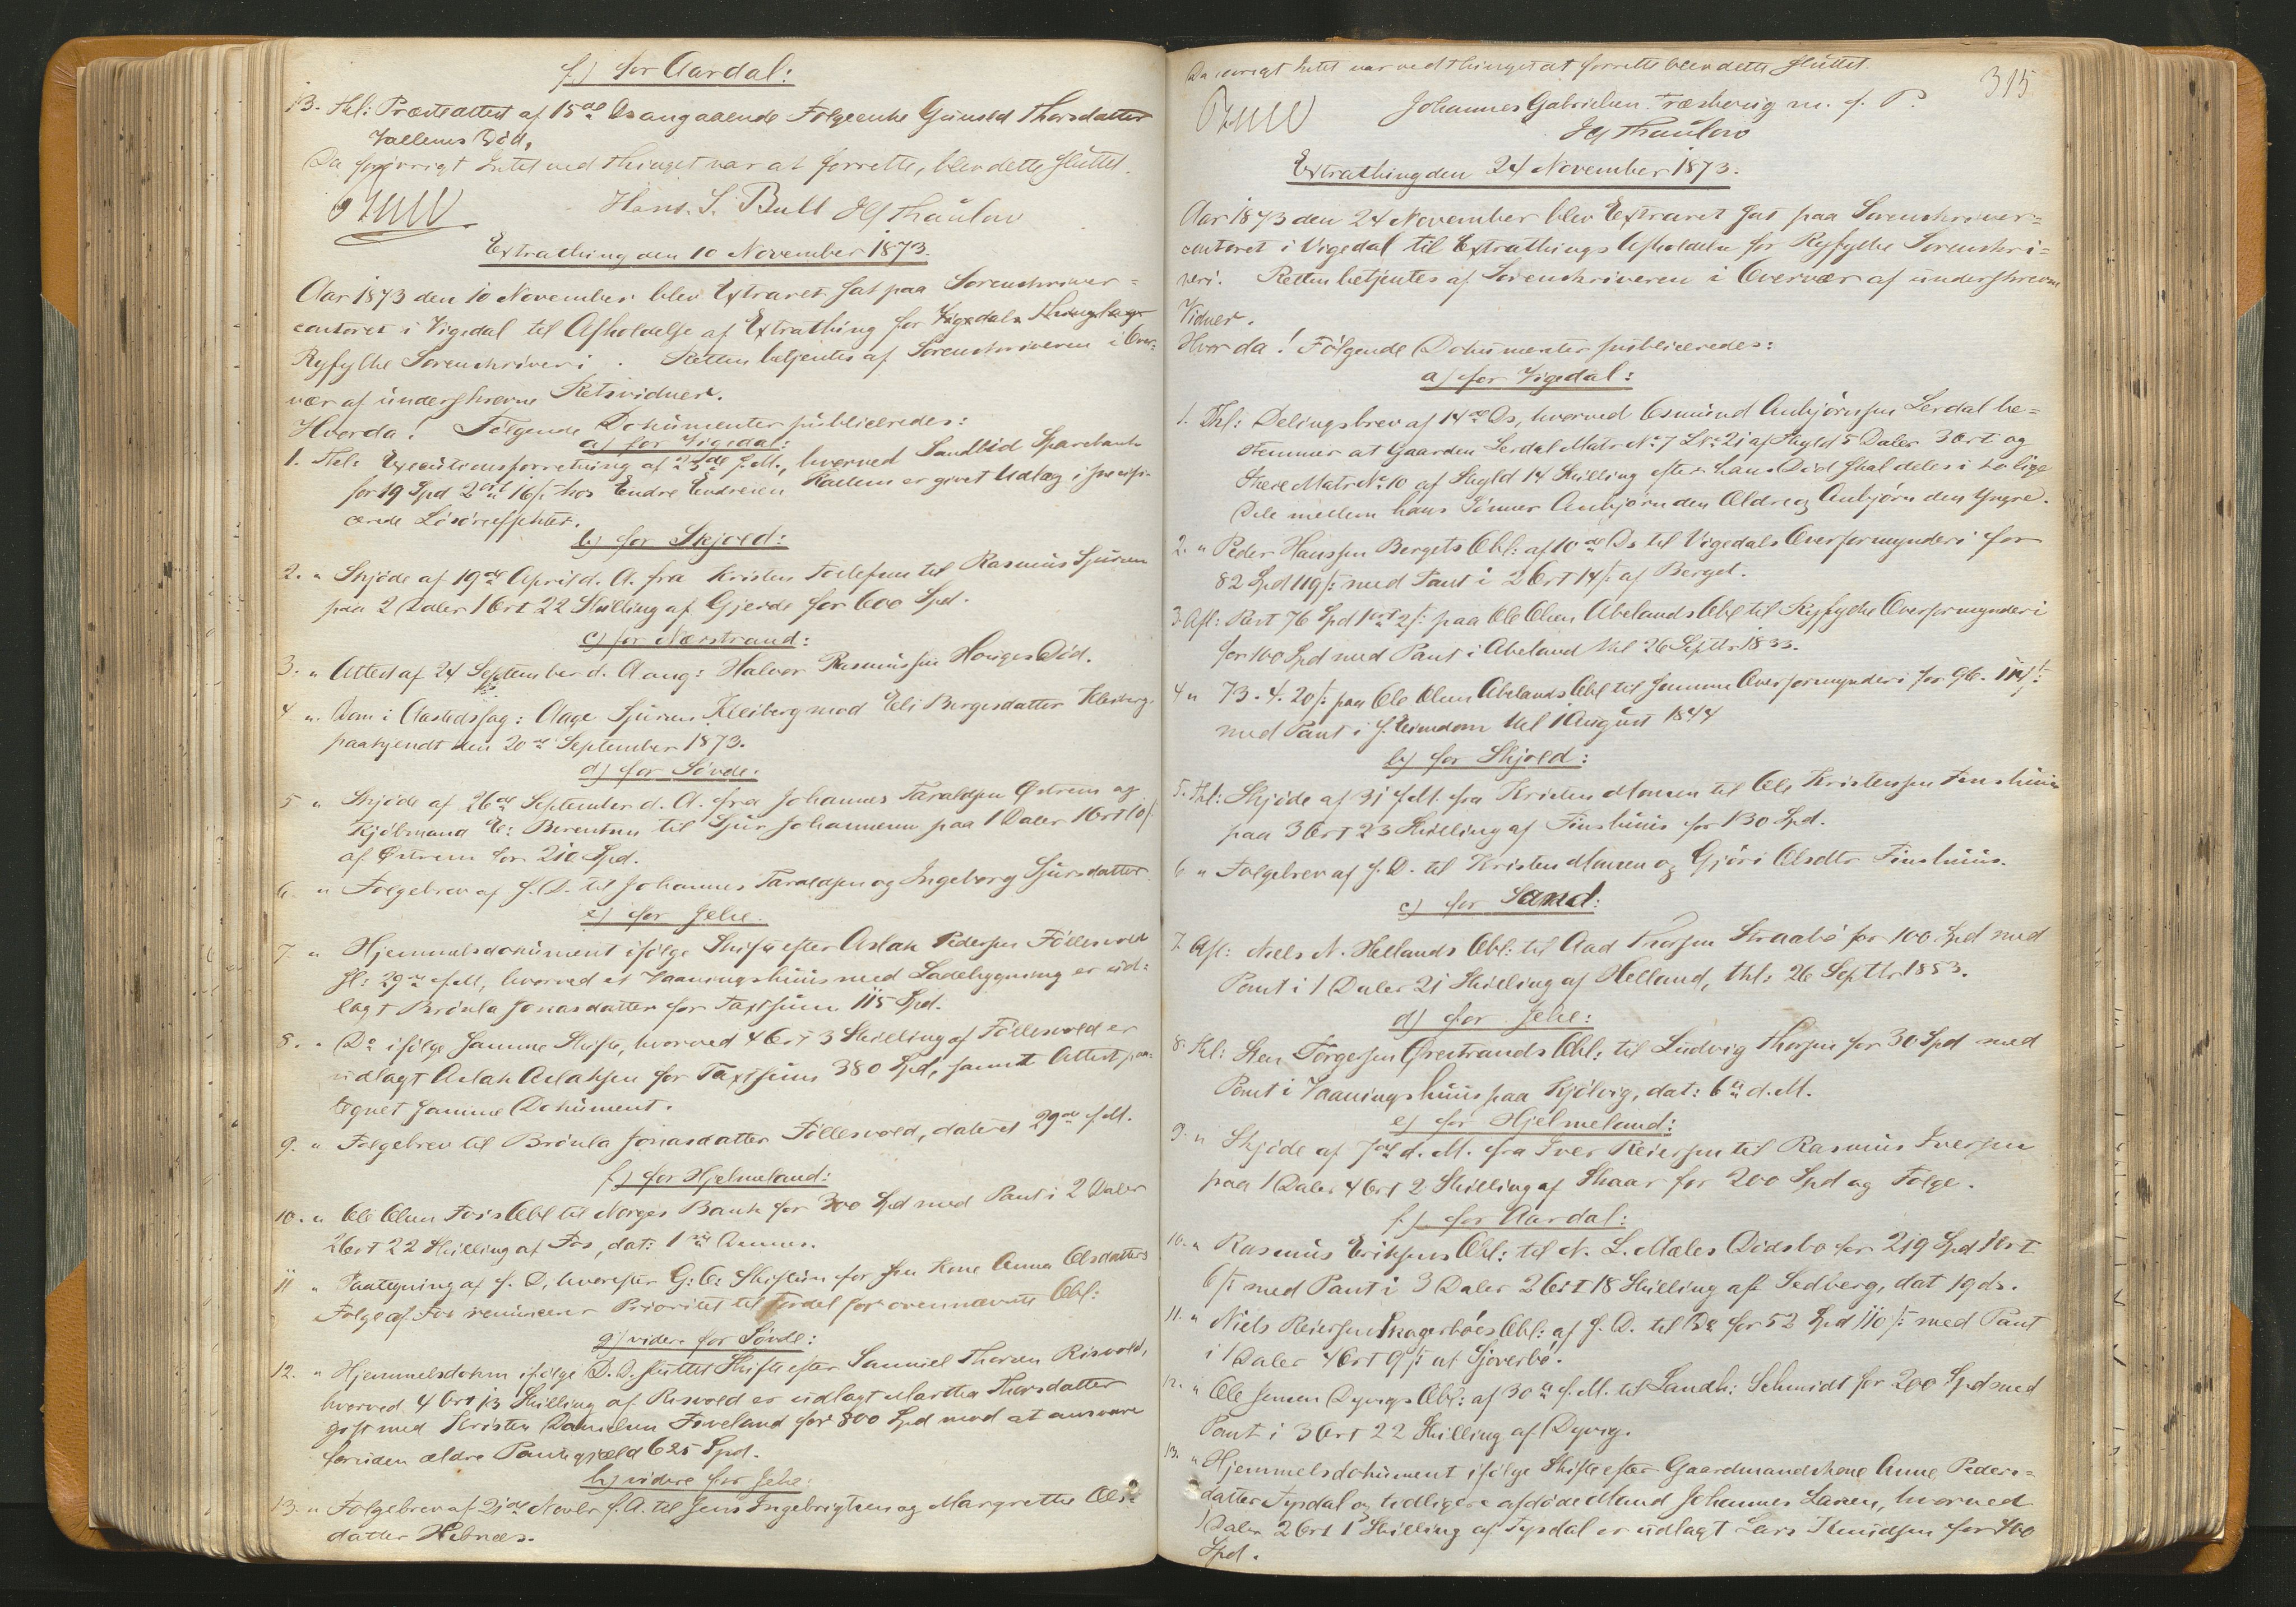 f) for Aardal:
13. thl: Præsteattest af 15de ds angaaende Folgeenke Gunild Thorsdatter
Vallems Död,
Da forövrigt Intet ved Thinget var at forrette, blev dette sluttet.
Hans. S. Bull JG Thaulow
Extrathing den 10 November 1873.
Aar 1873 den 10 November blev Extraret sat paa Sorenskriver=
contoret i Vigedal til Afholdelse af Extrathing for Vigedals Thinglag
Ryfylke Sorenskriveri. Retten betjentes af Sorenskriveren i Over=
vær af underskrevne Retsvidner.
Hvorda! Følgende Dokumenter publiceredes:
a) for Vigedal:
1. thl: Executionsforretning af 23de f.M., hvorved Sandeid Sparebank
for 19 Spd 2 ort 16 s. hos Endre Endresen Hallem er givet Udlæg i specifi-
cerede Lösöreeffekter.
b) for Skjold:
2. " Skjöde af 19de April d. A. fra Kristen Tollefsen til Rasmus Sjursen
paa 2 Daler 1 Ort 22 Skilling af Gjerde for 600 Spd.
c) for Nærstrand:
3. " Attest af 24 September d. A ang: Halvor Rasmussen Höiges Död.
4 " Dom i Aastedssag: Aage Sjursen Kleiberg mod Eli Bergesdatter Kleiberg,
paakjendt den 20de September 1873.
d) for Sövde:
5 " Skjöde af 26de September d. A. fra Johannes Taraldsen Østrem og
Kjöbmand E: Berentsen til Sjur Johannesen paa 1 Daler 1 Ort 10 s.
af Østrem for 210 Spd.
6. " Folgebrev af s. D. til Johannes Taraldsen og Ingeborg Sjursdatter
e) for Jelse.
7. " Hjemmelsdokument ifölge Skifte efter Aslak Pedersen Föllesvold
sl: 29de f.M, hvorved et Vaaningshuus med Ladebygning er ud=
lagt Brönla Jonasdatter for Taxtsum 115 Spd.
8. " Do ifölge samme Skifte, hvorved 4 Ort 3 Skilling af Föllesvold er
udlagt Aslak Aslaksen for Taxtsum 380 Spd, samt Attest paa=
tegnet samme Dokument.
9. " Folgebrev til Brönla Jonasdatter Föllesvold, dateret 29de f.M.
f) for Hjelmeland:
10. " Ole Olsen Fos's Obl til Norges Bank for 300 Spd med Pant i 2 Daler
2 Ort 22 Skilling af Fos, dat: 1ste
11 " Paategning af s. D, hvorefter G: O: Skiftun for sin Kone Anna Olsdatters
Folge af Fos renuncerer Prioritet til Fordel for ovennævnte Obl:
g) videre for Sövde:
12. " Hjemmelsdokum ifölge D. D. sluttet Skifte efter Samuel Thorsen Risvold,
hvorved 4 Ort 13 Skilling af Risvold er udlagt Martha Thorsdatter
gift med Kristen Danielsen Foveland for 800 Spd mod at ansvare
foruden ældre Pantegjæld 625 Spd.
h) videre for Jelse:
13. " Folgebrev af 21de Novbr f. A. til Jens Ingebrigtsen og Margrethe Ols=
datter Hebnæs.
315
Da övrigt Intet var ved thinget at forrette blev dette sluttet.
Johannes Gabrielsen Træskerig m. f. P.
JG Thaulow
Extrathing den 24 November 1873.
Aar 1873 den 24 November blev Extraret sat paa Sorenskriver=
contoret i Vigedal til Extrathings Afholdelse for Ryfylke Sorenskri=
veri. Retten betjentes af Sorenskriveren i Overvær af underskrevne
Vidner.
Hvorda! Fölgende Dokumenter publiceredes:
a) for Vigedal:
1. Thl: Delingsbrev af 14de Ds, hvorved Osmund Anbjörnsen Lerdal be=
stemmer at Gaarden Lerdal Matr No 7 LNo 21 af Skyld 5 Daler 3 Ort og
Skere Matr No 10 af Skyld 14 Skilling efter hans Död skal deles i to lige
Dele mellem hans Sönner Anbjörn den Ældre og Anbjörn den Yngre.
2. " Peder Hanssen Bergets Obl: af 10de Ds til Vigedals Overformynderi for
82 Spd 119 s: med Pant i 2 Ort 14 s: af Berget.
3 Afl: Rest 76 Spd 1 ort 2 s: paa Ole Olsen Abelands Obl til Ryfylke Overformynderi
for 100 Spd med Pant i Abeland thl 26 Septbr 1833.
4 " 73. 4. 20 s: paa Ole Olsen Abelands Obl til samme Overformynderi for 96.
med Pant i s. Eiendom thl 1 August 1844
b) for Skjold:
5. thl: Skjöde af 31 f.M. fra Kristen Monsen til Ole Kristensen Finshuus
paa 3 Ort 23 Skilling af Finshuus for 130 Spd.
6 " Folgebrev af s. D. til Kristen Monsen og Gjöri Olsdtr Finshuus.
c) for Sand:
7. Afl: Niels N. Hellands Obl: til Aad Thorsen Straabö for 100 Spd med
Pant i 1 Daler 21 Skilling af Helland, thl: 26 Septbr 1853.
d) for Jelse:
8. thl: Sten Torgersen Ørestrands Obl: til Ludvig Thorsen for 30 Spd med
Pant i Vaaningshuus paa Kjölvig, dat: 6te d. M.
e) for Hjelmeland:
9. " Skjöde af 7de d. M. fra Iver Reiersen til Rasmus Iversen
paa 1 Daler 4 Ort 2 Skilling af Skaar for 200 Spd og Folge.
f) for Aardal:
10. " Rasmus Eriksens Obl: til N. L. Mæles Dödsbo for 219 Spd 1 Ort
6 s: med Pant i 3 Daler 2 Ort 18 Skilling af Sedberg, dat 19 ds.
11. " Niels Reiersen Snagerböes Obl: af s. D. til Do for 52 Spd 110 s: med Pant
i 1 Daler 4 Ort 9 s: af Sjoverbö.
12. " Ole Jensen Dyvigs Obl: af 30te f.M. til Landh: Schmidt for 200 Spd med
Pant i 3 Ort 22 Skilling af Dyvig.
13. " Hjemmelsdokument ifölge Skifte efter Gaardmandskone Anne Peders=
datter Tysdal og tidligere afdöde Mand Johannes Larsen, hvorved
1 Daler 2 Ort 1 Skilling af Tysdal er udlagt Lars Knudsen for 400
Spd.